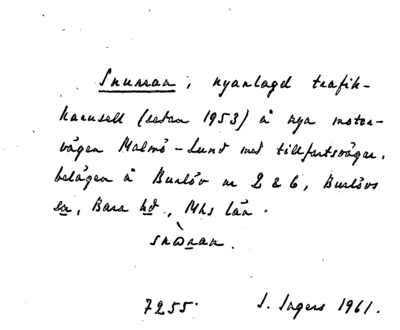 Snurran, nyanlagd trafik-
karusell (sedan 1953) å nya motor-
vägen Malmö - Lund med tillfartsvägar,
belägen å Burlöv nr 2 & 6, Burlövs
sn, Bara hd, Mhs län.
snùran.
7255. S. Ingers 1961.